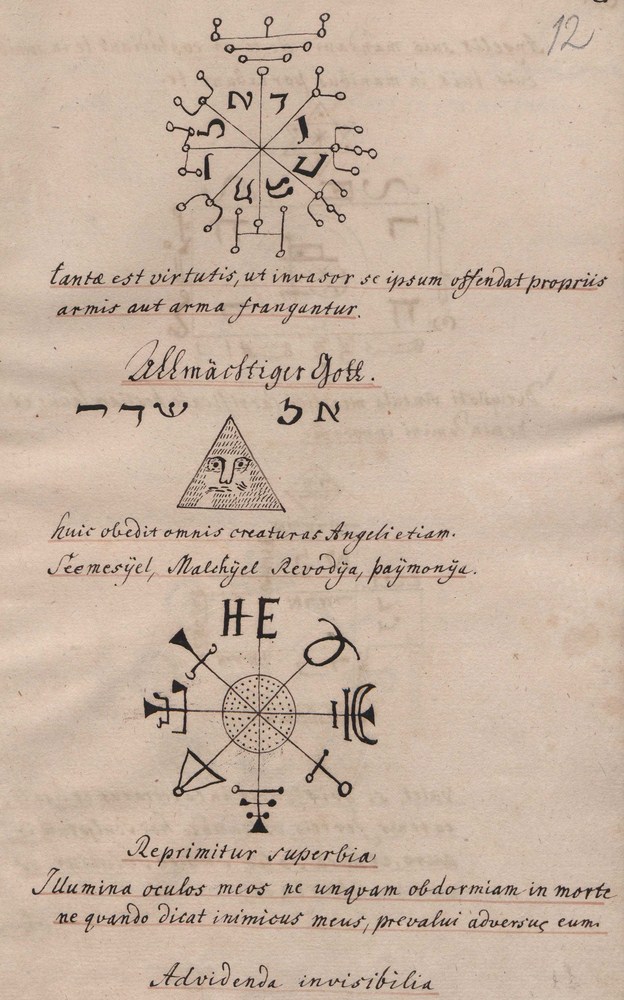 12
tantæ est virtutis, ut invasor se ipsum offendat propriis
armis aut arma frangantur.
Allmächtiger Gott.
huic obedit omnis creaturas Angeli etiam.
Seemesÿel, Malchÿel Revodÿa, paÿmonÿa.
HE
Reprimitur superbia
Illumina oculos meos ne unqvam obdormiam in morte
ne qvando dicat inimicus meus, prevalui adversus eum.
Advidenda invisibilia